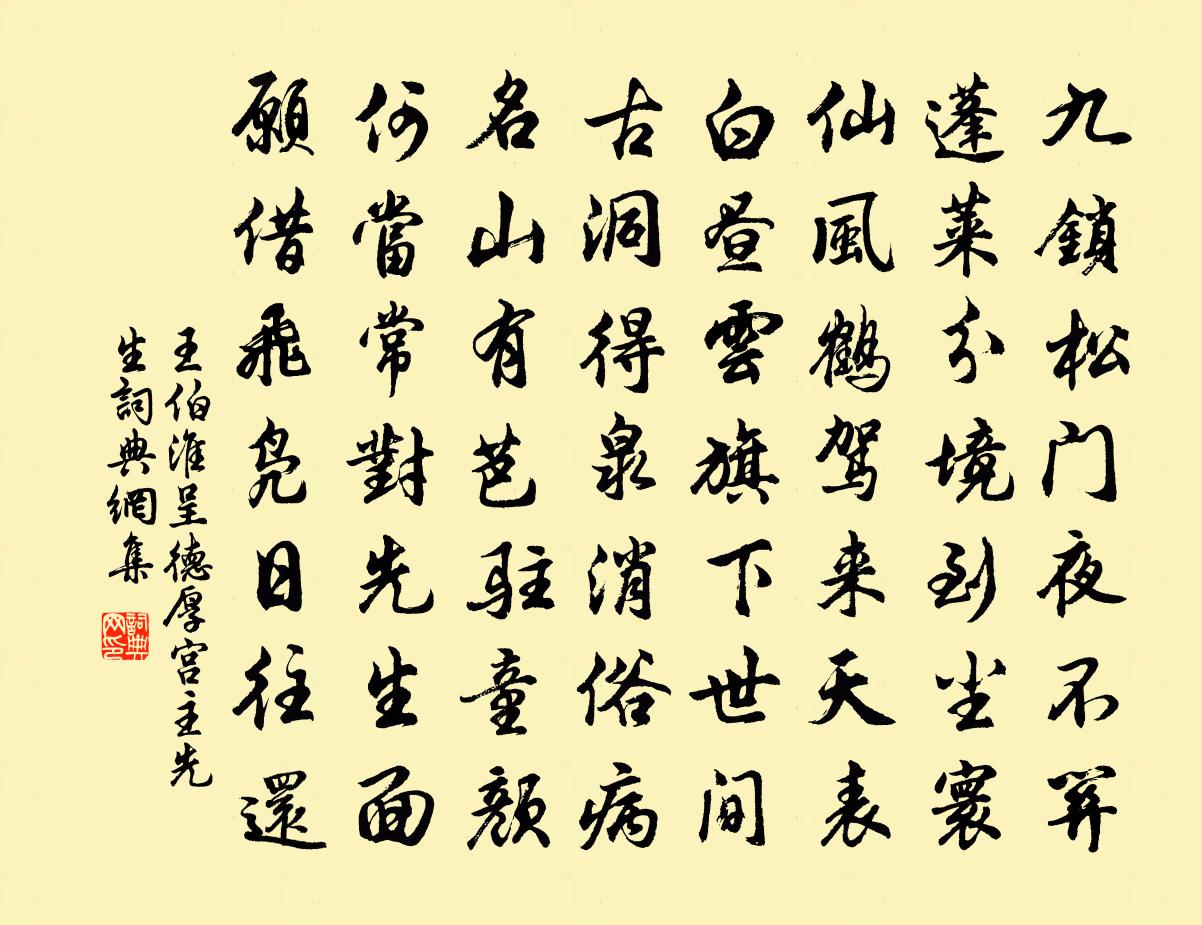 九鎖松门夜不关
蓬萊分境到尘寰
仙風鶴驾来天表
白昼雲旗下世间
古洞得泉消俗病
名山有芭驻童顏
何當常對先生面
願借飛凫日往還
王伯淮呈德厚宫主先
生詞典網集
詞典
网印